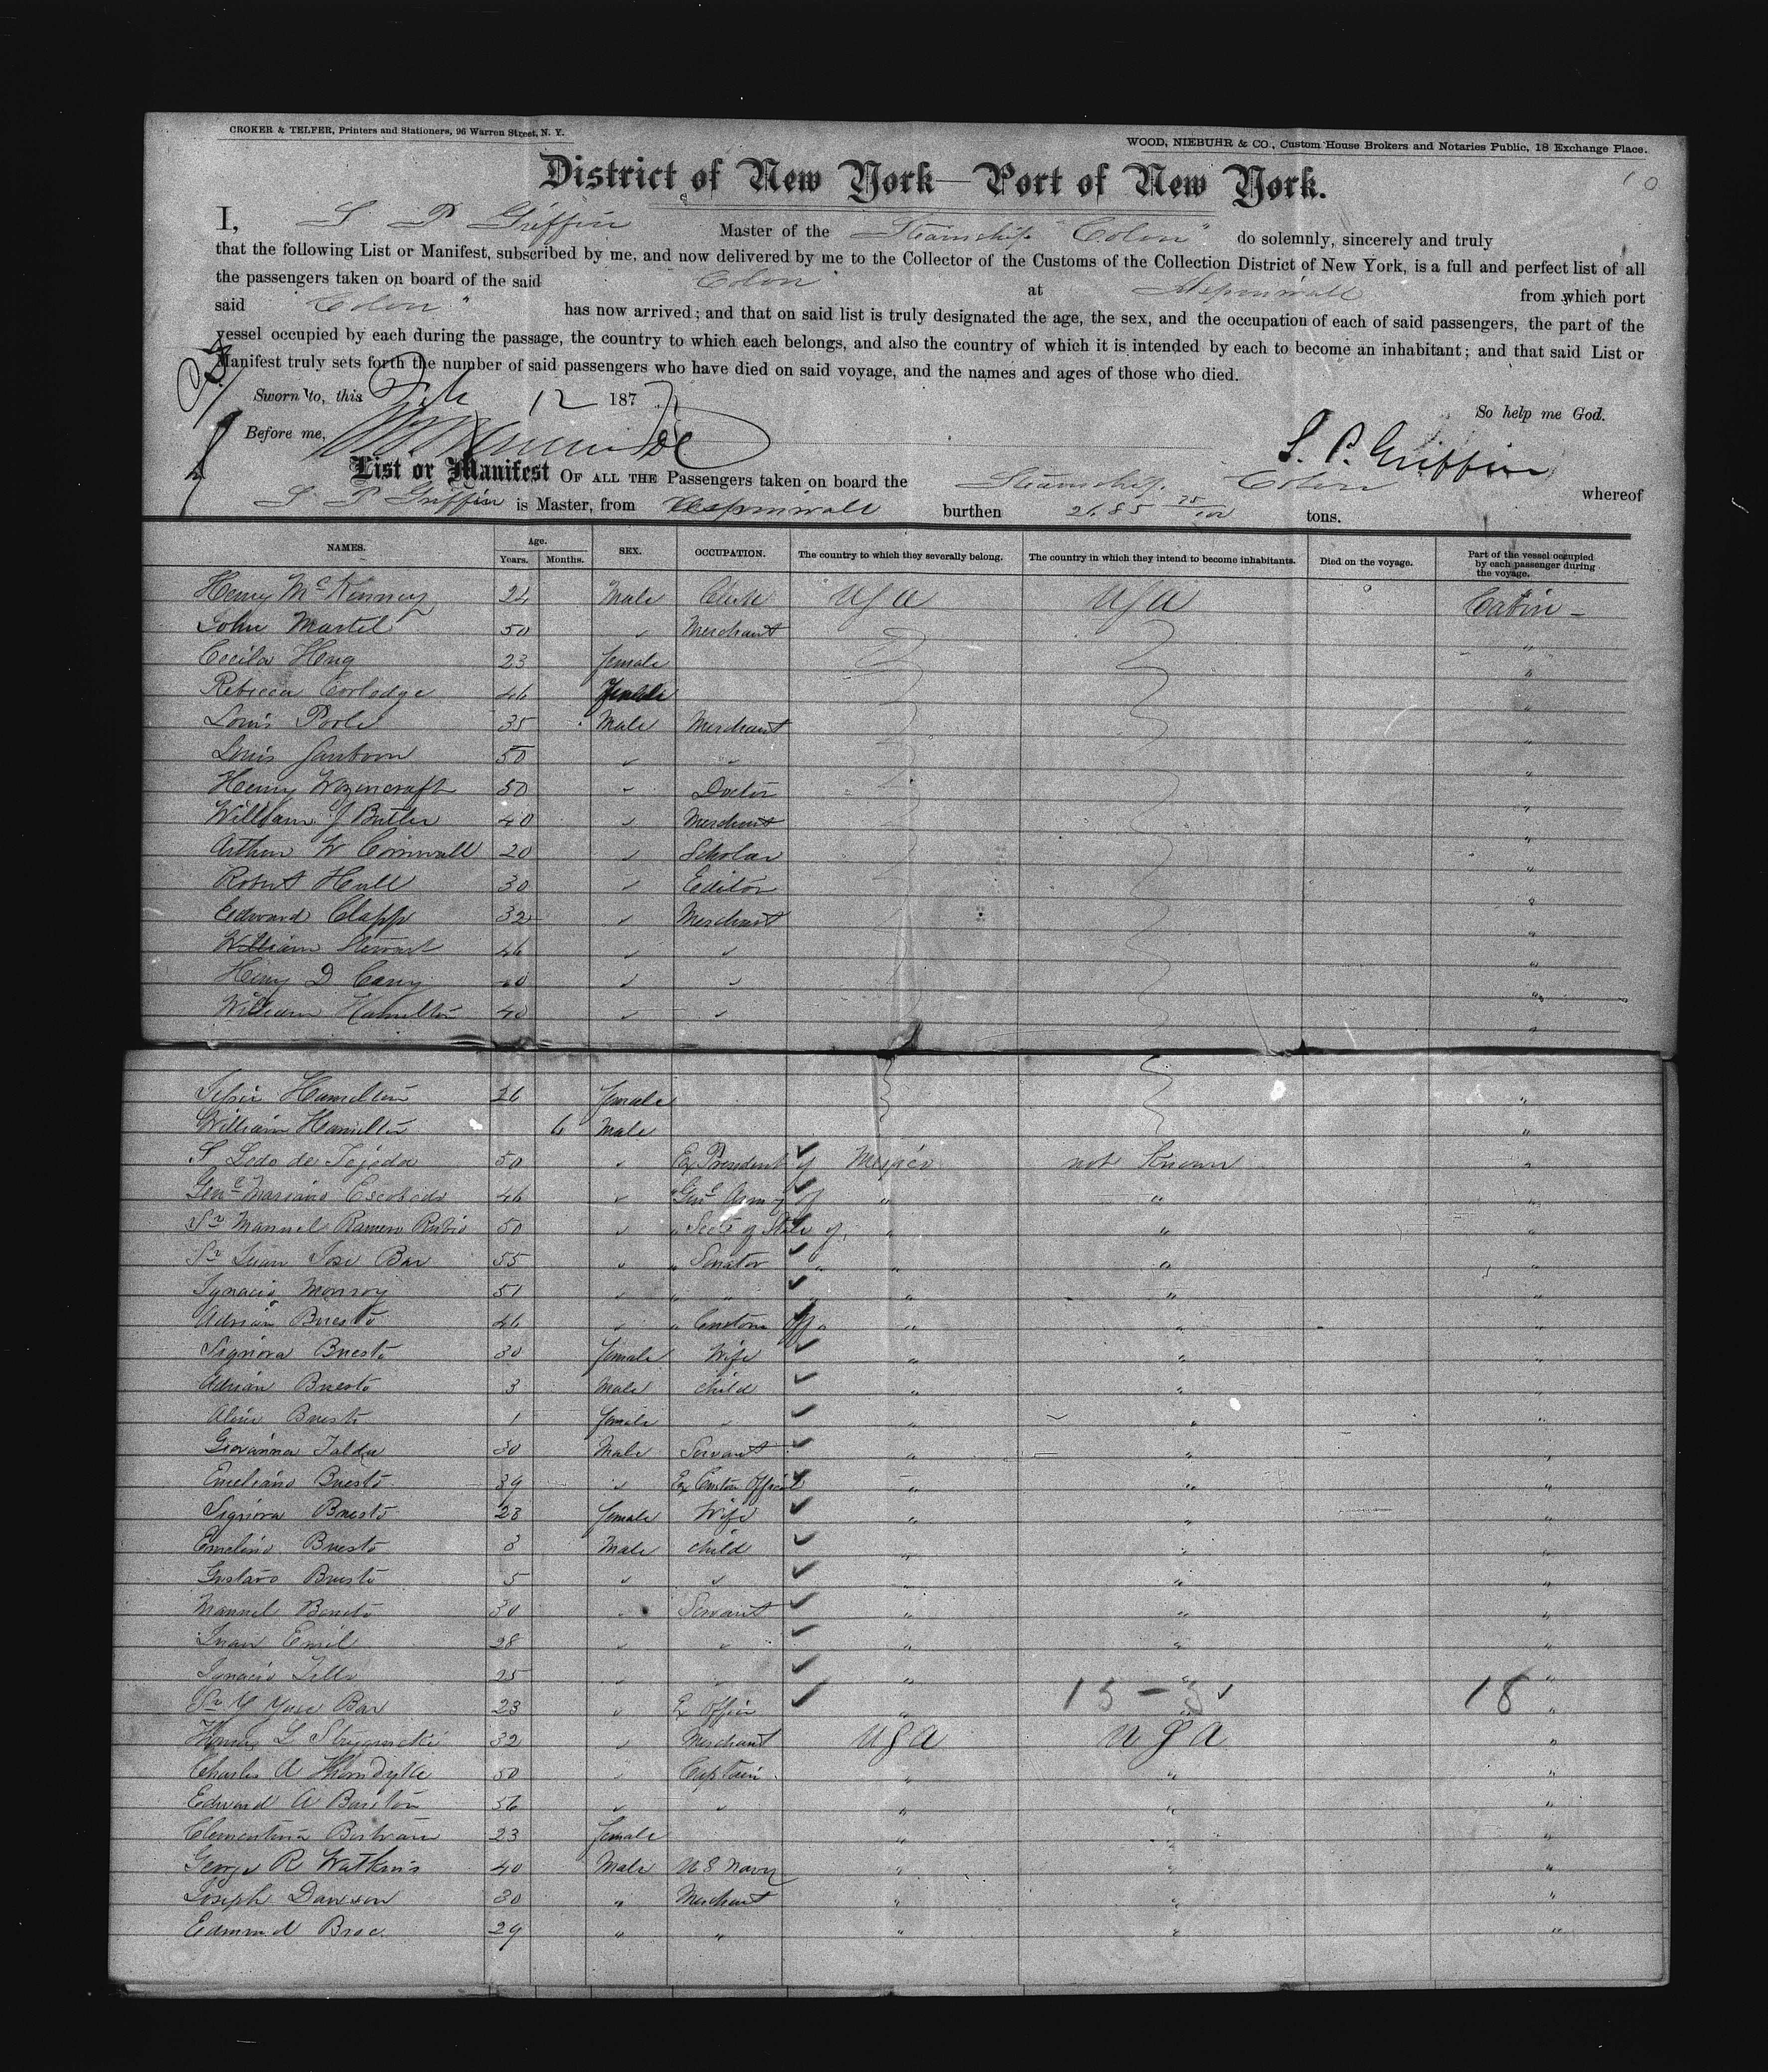 CROKER & TELFER, Printers and Stationers, 96 Warren Street, N. Y.
WOOD, NIEBUHR & CO., Custom House Brokers and Notaries Public, 18 Exchange Place.
District of New York—Port of New York.
I, S P Griffin Master of the Steamship "Colon" do solemnly, sincerely and truly
that the following List or Manifest, subscribed by me, and now delivered by me to the Collector of the Customs of the Collection District of New York, is a full and perfect list of all
the passengers taken on board of the said Colon at Aspinwall from which port
said "Colon" has now arrived; and that on said list is truly designated the age, the sex, and the occupation of each of said passengers, the part of the
vessel occupied by each during the passage, the country to which each belongs, and also the country of which it is intended by each to become an inhabitant; and that said List or
Manifest truly sets forth the number of said passengers who have died on said voyage, and the names and ages of those who died.
Sworn to, this Feb 12 1877
So help me God.
Before me,
S. P. Griffin
List or Manifest OF ALL THE Passengers taken on board the Steamship Colon whereof
S P Griffin is Master, from Aspinwall burthen 2685 75/100 tons.
NAMES. Age. Years. Months. SEX. OCCUPATION. The country to which they severally belong. The country in which they intend to become inhabitants. Died on the voyage. Part of the vessel occupied by each passenger during the voyage.
Henry McKenney 24 Male Clerk USA USA Cabin
John Martel 50 " Merchant "
Cecila Hong 23 female "
Rebecca 46 Female "
Louis Poole 35 Male Merchant "
Louis Sanborn 50 " " "
Henry Wozencraft 50 " Doctor "
William J Butler 40 " Merchant "
Arthur W Cornwall 20 " Scholar "
Robert Hull 30 " Editor "
Edward Clapp 32 " Merchant "
William Stewart 46 " " "
Henry D Cary 40 " " "
William Hamilton 40 " " "
Hamilton 26 female "
William Hamilton 6 Male "
S Ledo de Tejeda 50 " Ex President of Mexico not Known "
Genl Mariano Escobedo 46 " " Genl Army of " " "
Sr Manuel Romero Rubio 50 " " Secty of State of " " "
Sr Juan Jose Baz 55 " " Senator " " " "
Ignacio Monroy 51 " " " " " " "
Adrian Buesto 46 " " Custom Off " " " "
Signora Buesto 30 female Wife " " "
Adrian Buesto 3 Male child " " "
Aline Buesto 1 female " " " "
Giovanna Talda 30 Male Servant " " "
Emeliano Buesto 39 " Ex Custom Official " " "
Signora Buesto 28 female Wife " " "
Emelino Buesto 8 Male child " " "
Gustavo Buesto 5 " " " " "
Manuel 30 " Servant " " "
Juan Emil 28 " " " " "
Ignacio Tello 25 " " " " "
Sr Baz 23 " Ex Officer " 15 - 5 18 "
Henry L 32 " Merchant USA USA "
Charles A Thorndyke 50 " Captain " " "
Edward A Barton 56 " " " " "
Clementina Bertram 23 female " " "
George R Watkins 40 Male U S Navy " " "
Joseph Dawson 30 " Merchant " " "
Edmund Broc. 29 " " " " "